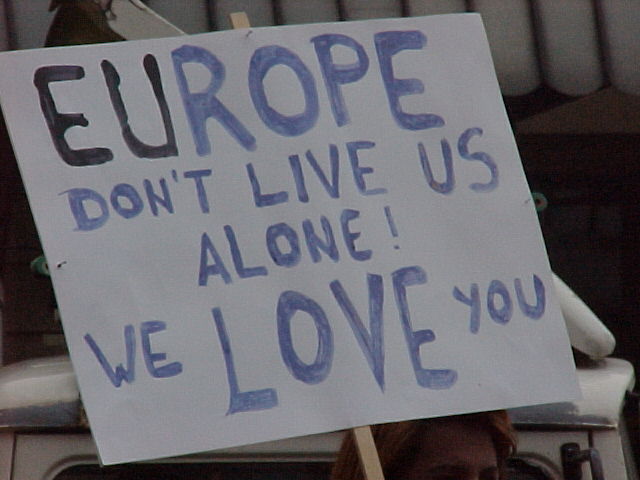 EUROPE
DON'T LIVE US
ALONE!
WE LOVE YOU